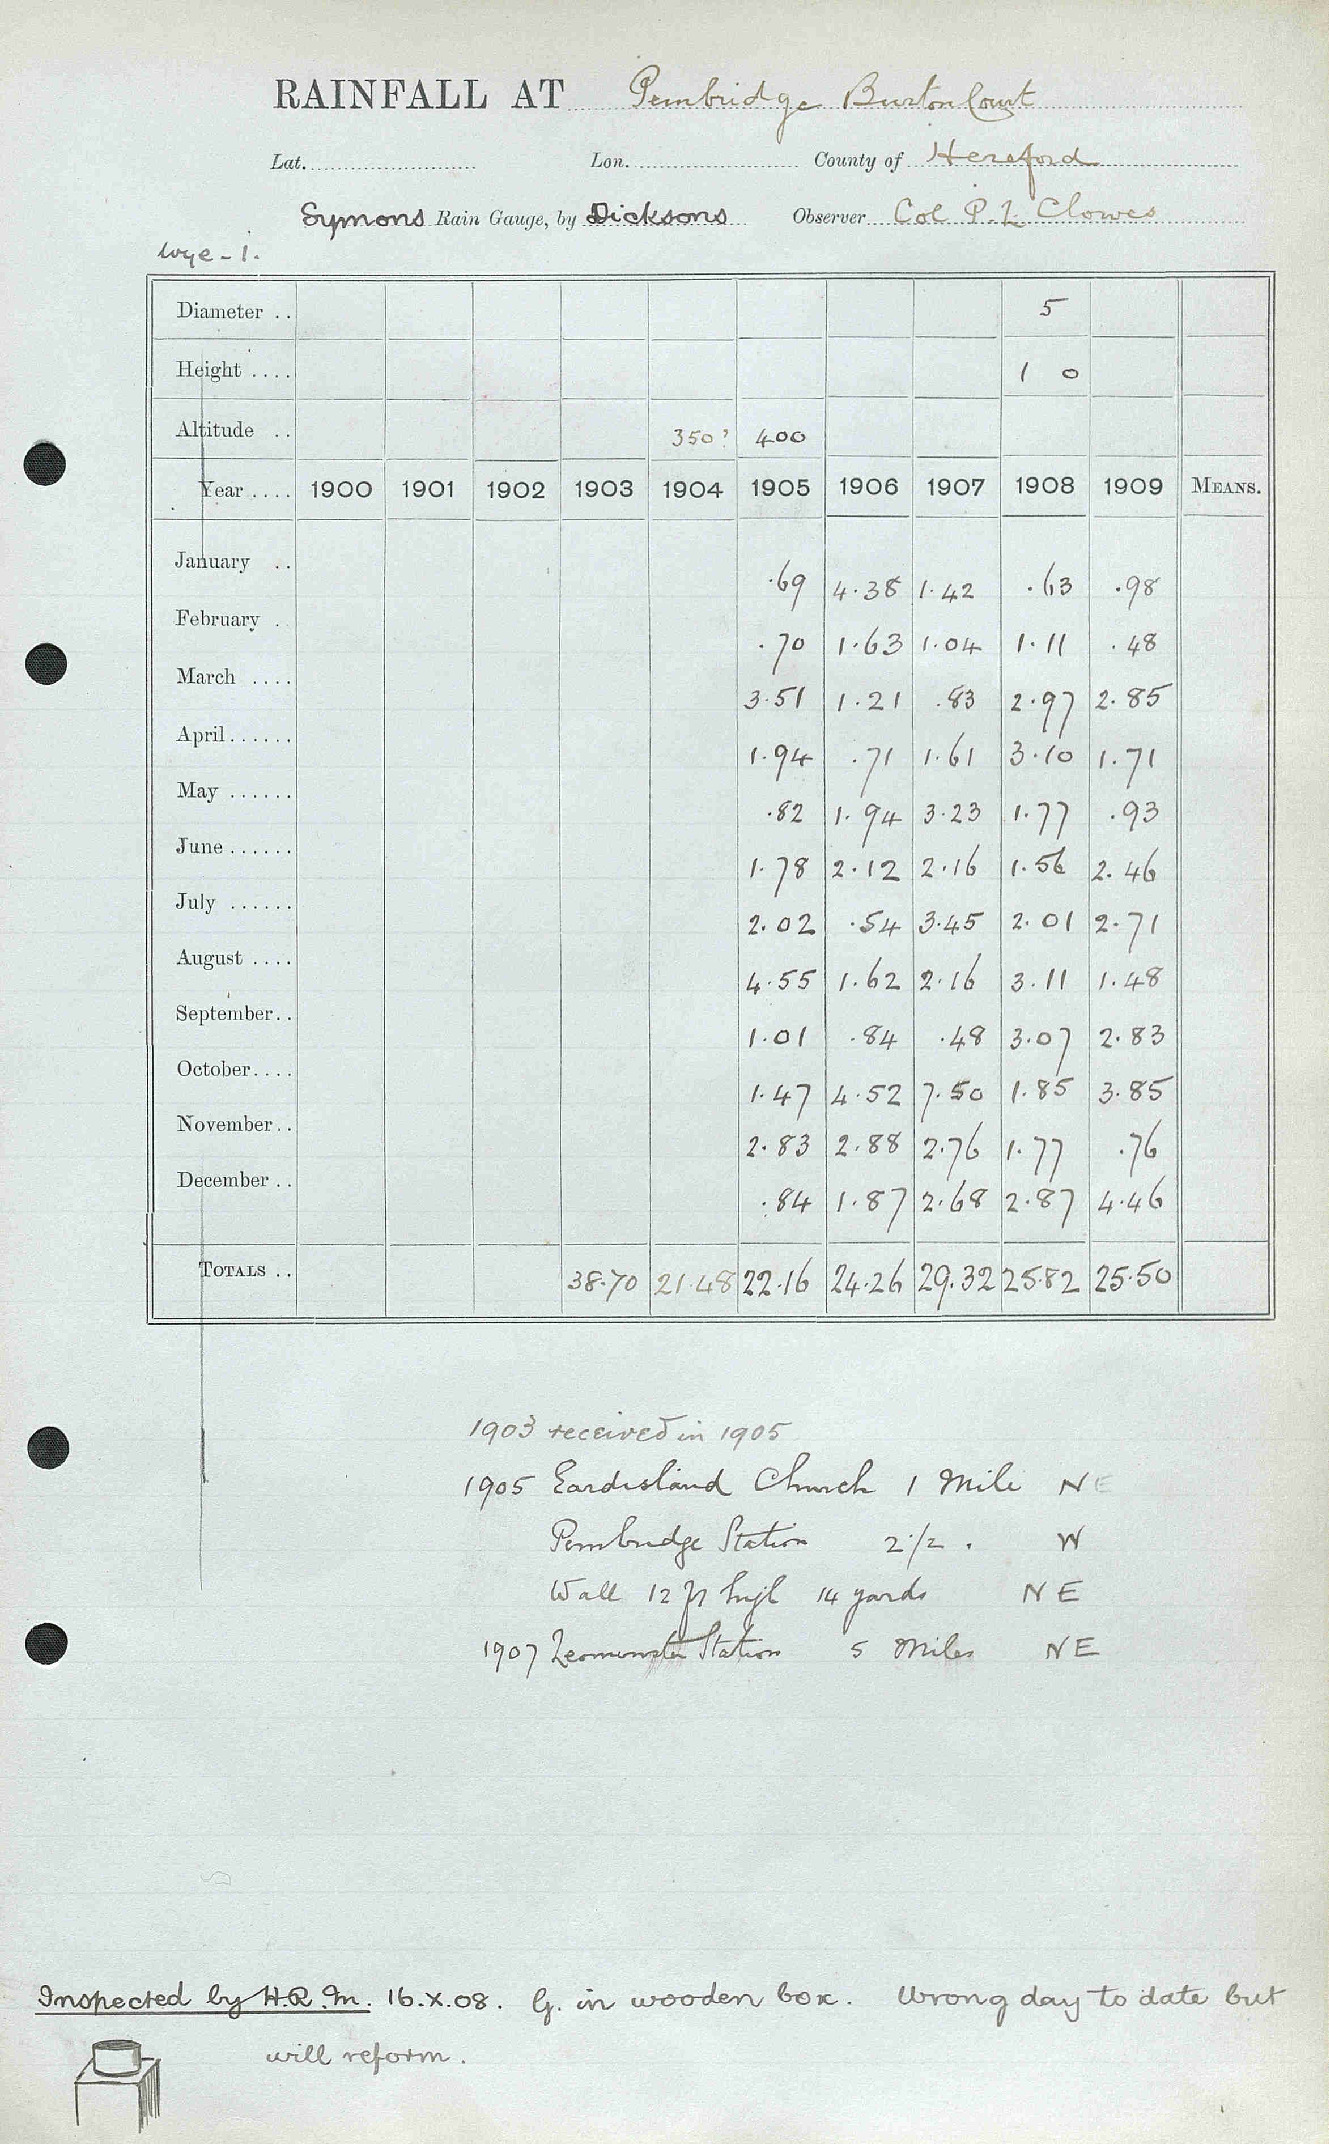 RAINFALL AT Pembridge Burton Court
Lat. Lon. County of Hereford
Symons Rain Gauge, by Dicksons Observer Col P. L. Clowes
Wye - 1.
Diameter .. 5
Height .... 1 0
Altitude .. 350? 400
Year .... 1900 1901 1902 1903 1904 1905 1906 1907 1908 1909 MEANS.
January .. .69 4.38 1.42 .63 .98
February . .70 1.63 1.04 1.11 .48
March .... 3.51 1.21 .83 2.97 2.85
April...... 1.94 .71 1.61 3.10 1.71
May ...... .82 1.94 3.23 1.77 .93
June ...... 1.78 2.12 2.16 1.56 2.46
July ...... 2.02 .54 3.45 2.01 2.71
August .... 4.55 1.62 2.16 3.11 1.48
September.. 1.01 .84 .48 3.07 2.83
October.... 1.47 4.52 7.50 1.85 3.85
November.. 2.83 2.88 2.76 1.77 .76
December .. .84 1.87 2.68 2.87 4.46
TOTALS .. 38.70 21.48 22.16 24.26 29.32 25.82 25.50
1903 received in 1905
1905 Eardisland Church 1 Mile NE
Pembridge Station 2 1/2 . W
Wall 12 ft high 14 yards NE
1907 Leominster Station 5 Miles NE
Inspected by H.R.M. 16.X.08. G. in wooden box. Wrong day to date but
will reform.